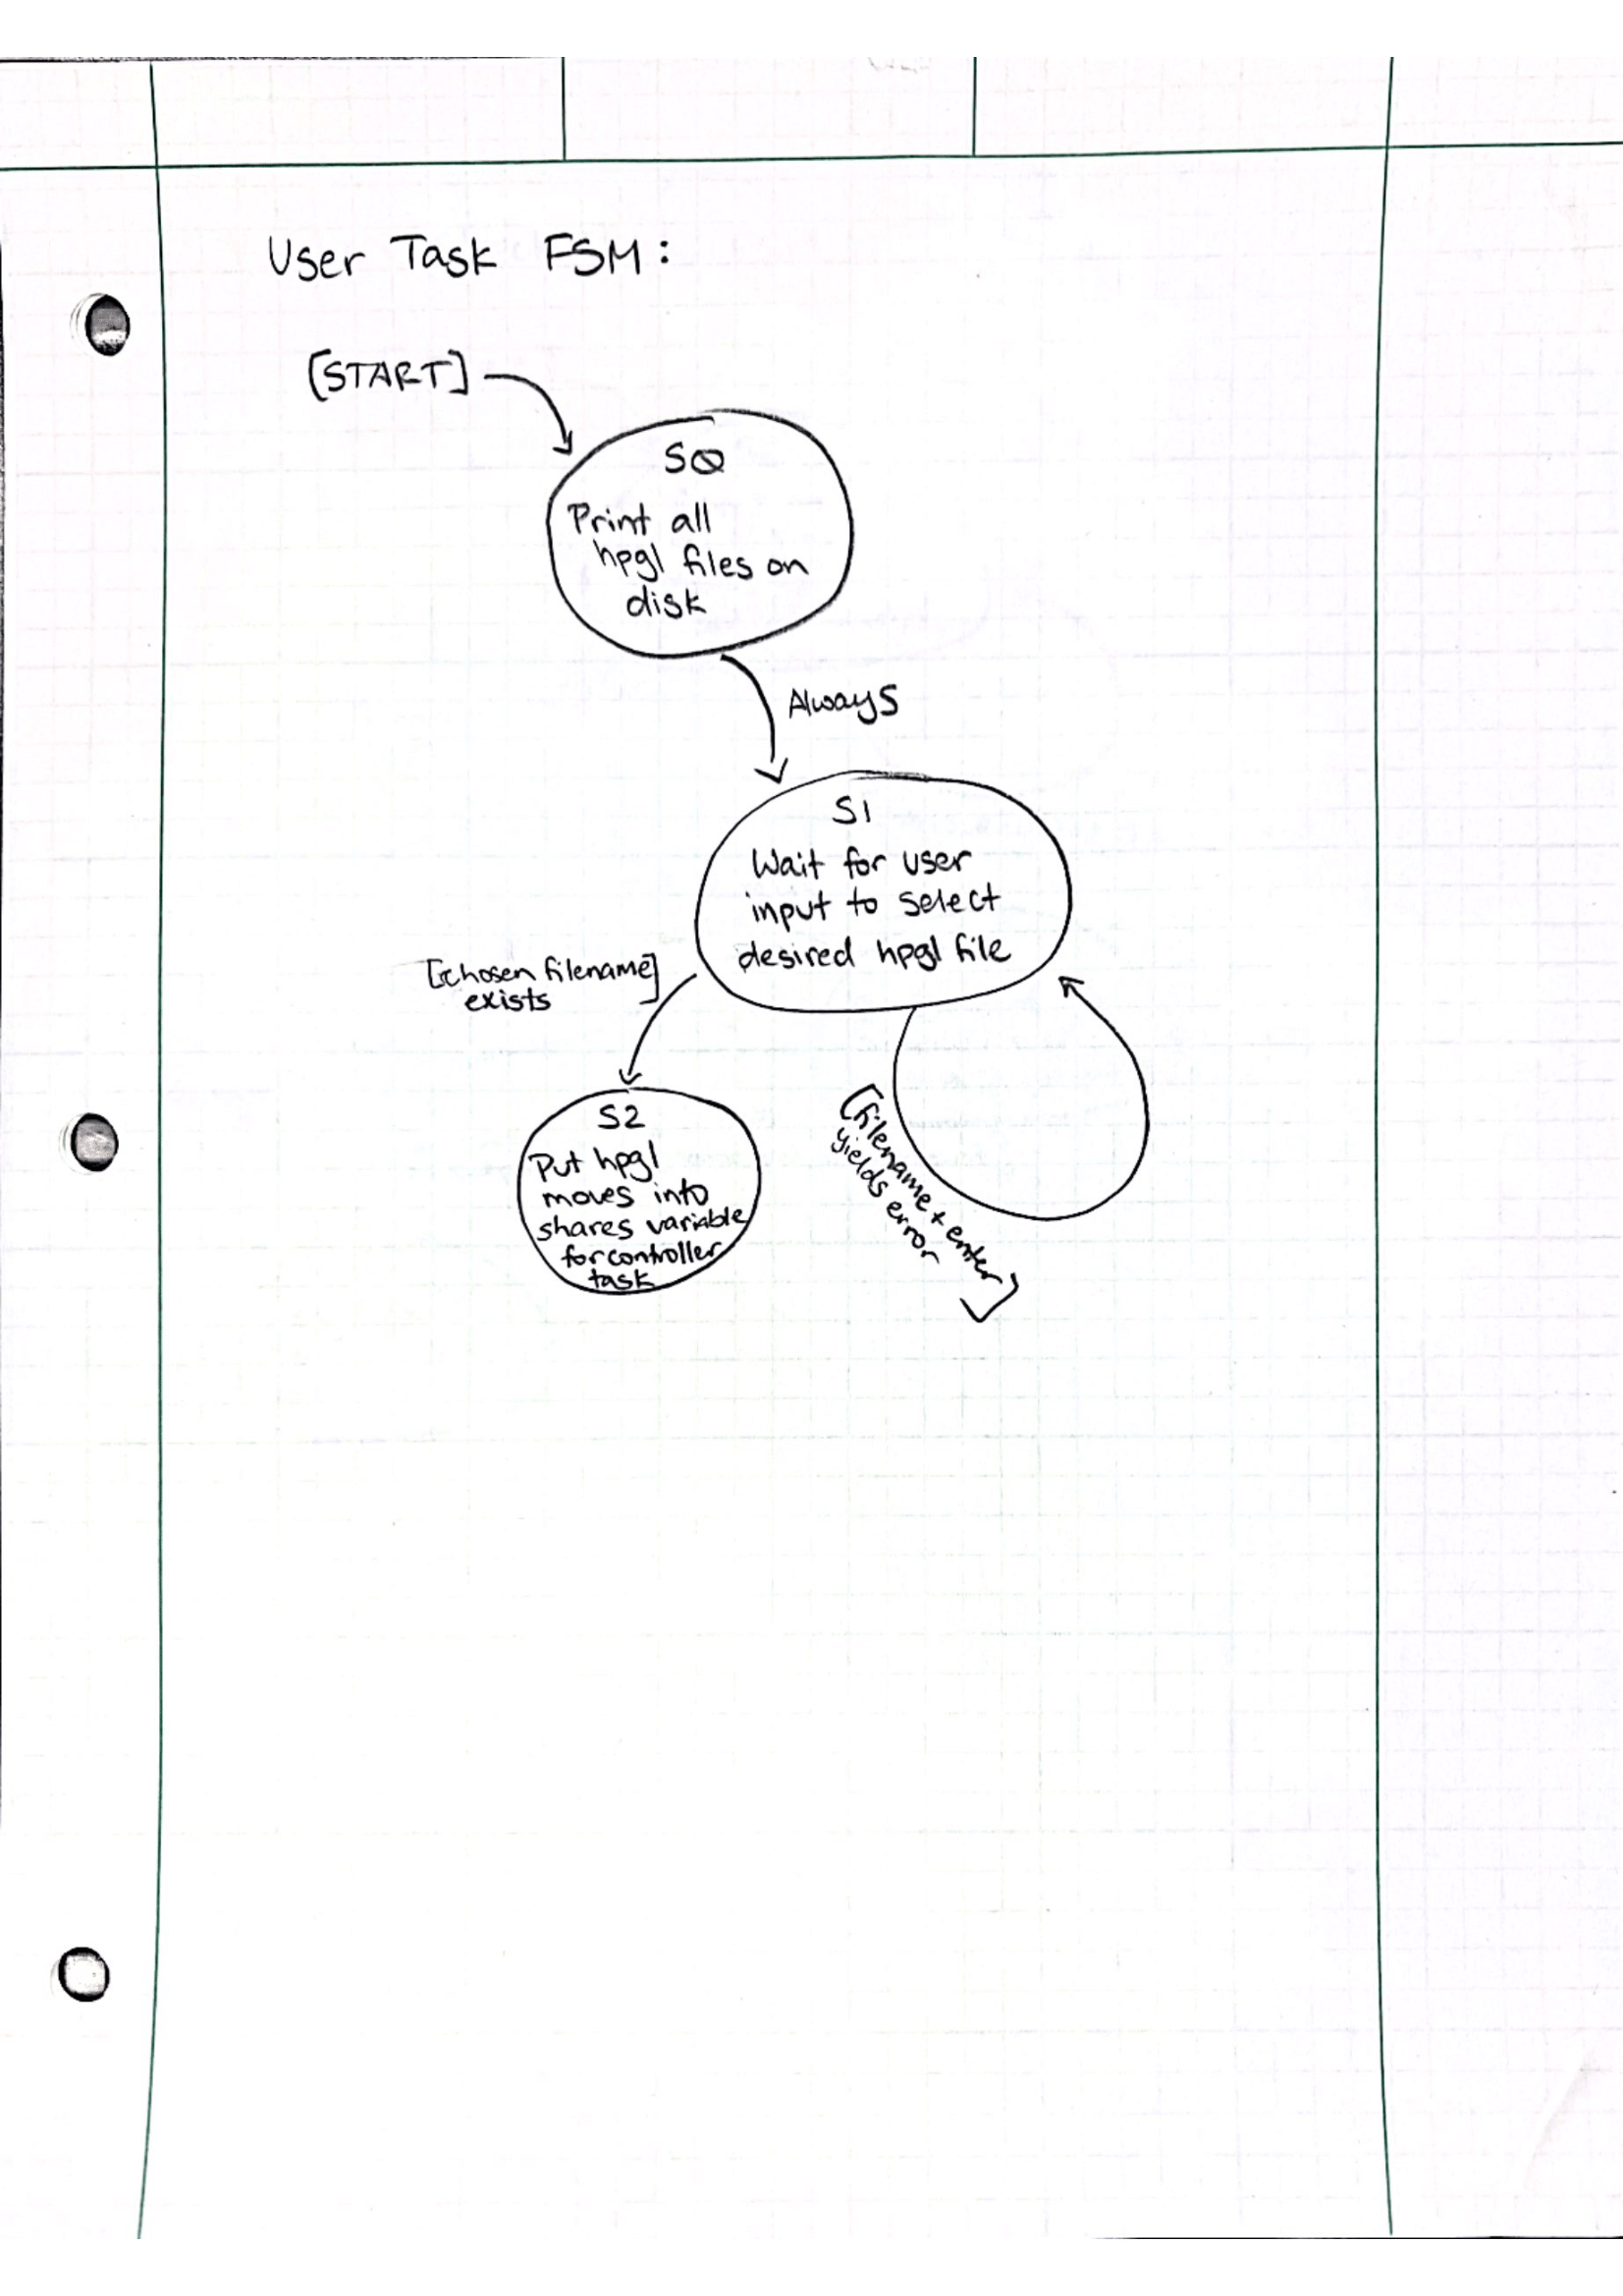 User Task FSM:
[START]
S0
Print all
hpgl files on
disk
Always
S1
Wait for user
input to select
desired hpgl file
[chosen filename]
exists
S2
Put hpgl
moves into
shares variable
for controller
task
[filename + enter]
yields error